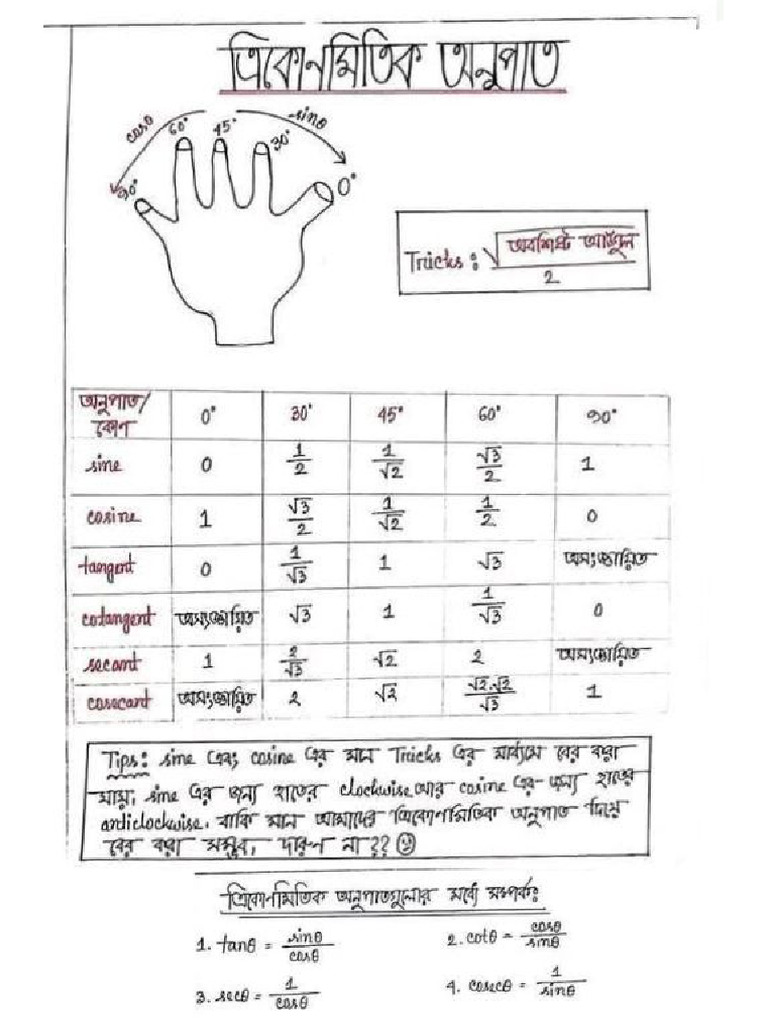 ত্রিকোণমিতিক অনুপাত
cosθ 60° 45° sinθ
30°
90° 0°
Tricks: √অবশিষ্ট আঙুল / 2
অনুপাত/কোণ 0° 30° 45° 60° 90°
sine 0 1/2 1/√2 √3/2 1
cosine 1 √3/2 1/√2 1/2 0
tangent 0 1/√3 1 √3 অসংজ্ঞায়িত
cotangent অসংজ্ঞায়িত √3 1 1/√3 0
secant 1 2/√3 √2 2 অসংজ্ঞায়িত
cosecant অসংজ্ঞায়িত 2 √2 √2.√2/√3 1
Tips: sine এবং cosine এর মান Tricks এর মাধ্যমে বের করা
যায়। sine এর জন্য হাতের clockwise আর cosine এর জন্য হাতের
anticlockwise. বাকি মান আমাদের ত্রিকোণমিতিক অনুপাত দিয়ে
বের করা সম্ভব, দারুন না??
ত্রিকোণমিতিক অনুপাতগুলোর মধ্যে সম্পর্কঃ
1. tanθ = sinθ/cosθ 2. cotθ = cosθ/sinθ
3. secθ = 1/cosθ 4. cosecθ = 1/sinθ